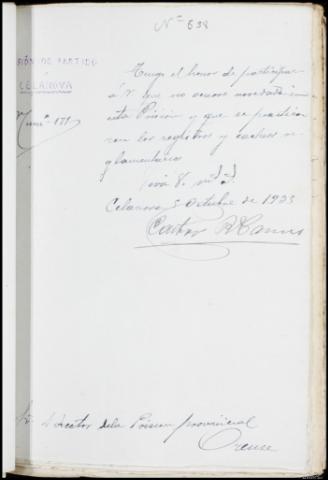 Nº 638
SIÓN DE PARTIDO
CELANOVA
Núm. 171
Tengo el honor de participar
á V. que no ocurre novedad en
esta Prisión y que se practica
ron los registros y cacheos re
glamentarios
Celanova 5 Octubre de 1923
Sr. Director de la Prision provincial
Orense